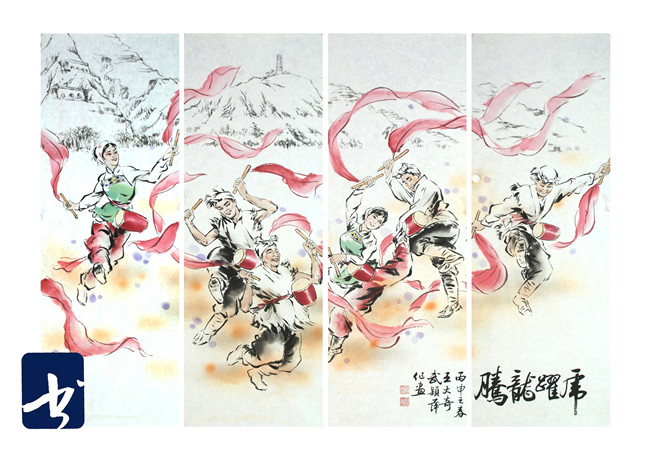 虎躍龍騰
丙申之春
王大奇
武穎萍
作畫
书